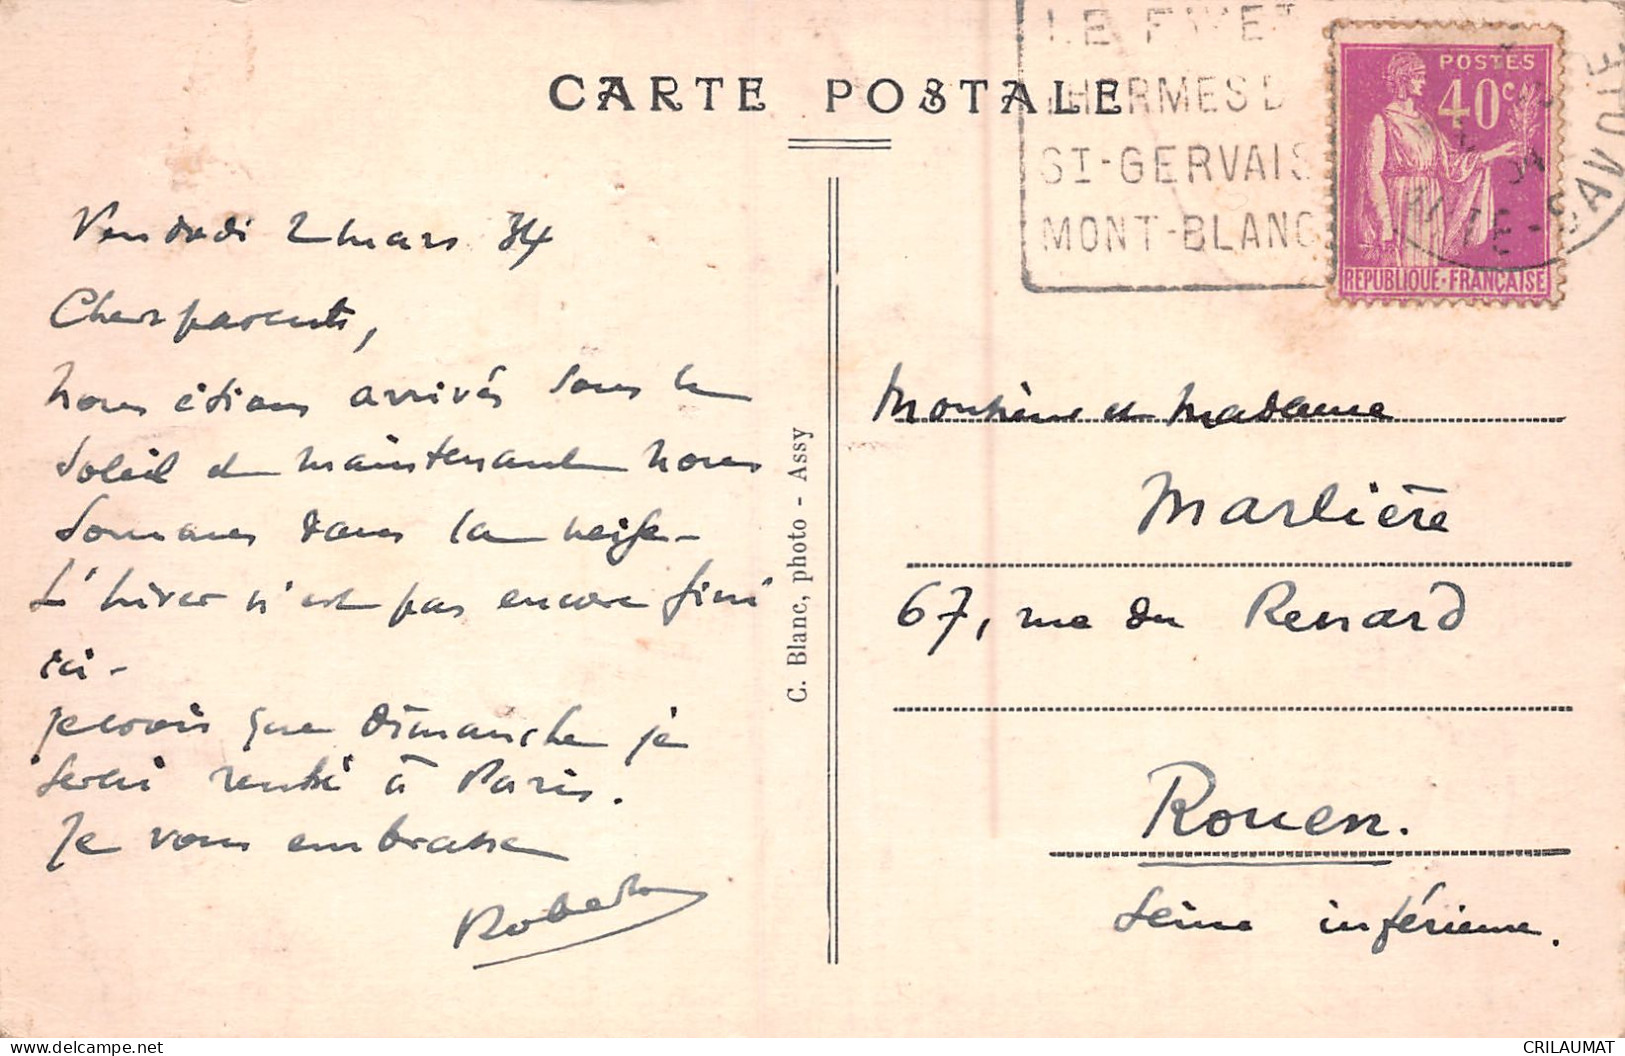 CARTE POSTALE
LE FAYET
THERMES D
ST-GERVAIS
MONT-BLANC
POSTES
40c
REPUBLIQUE-FRANÇAISE
HAUTE-SAVOIE
Vendredi 2 mars 34
Chers parents,
Nous étions arrivés sous le
soleil et maintenant nous
sommes dans la neige-
L'hiver n'est pas encore fini
ici-
je crois que dimanche je
serai rentré à Paris.
Je vous embrasse
Robert
C. Blanc, photo - Assy
Monsieur et Madame
Marlière
67, rue du Renard
Rouen.
Seine inférieure.
CRILAUMAT